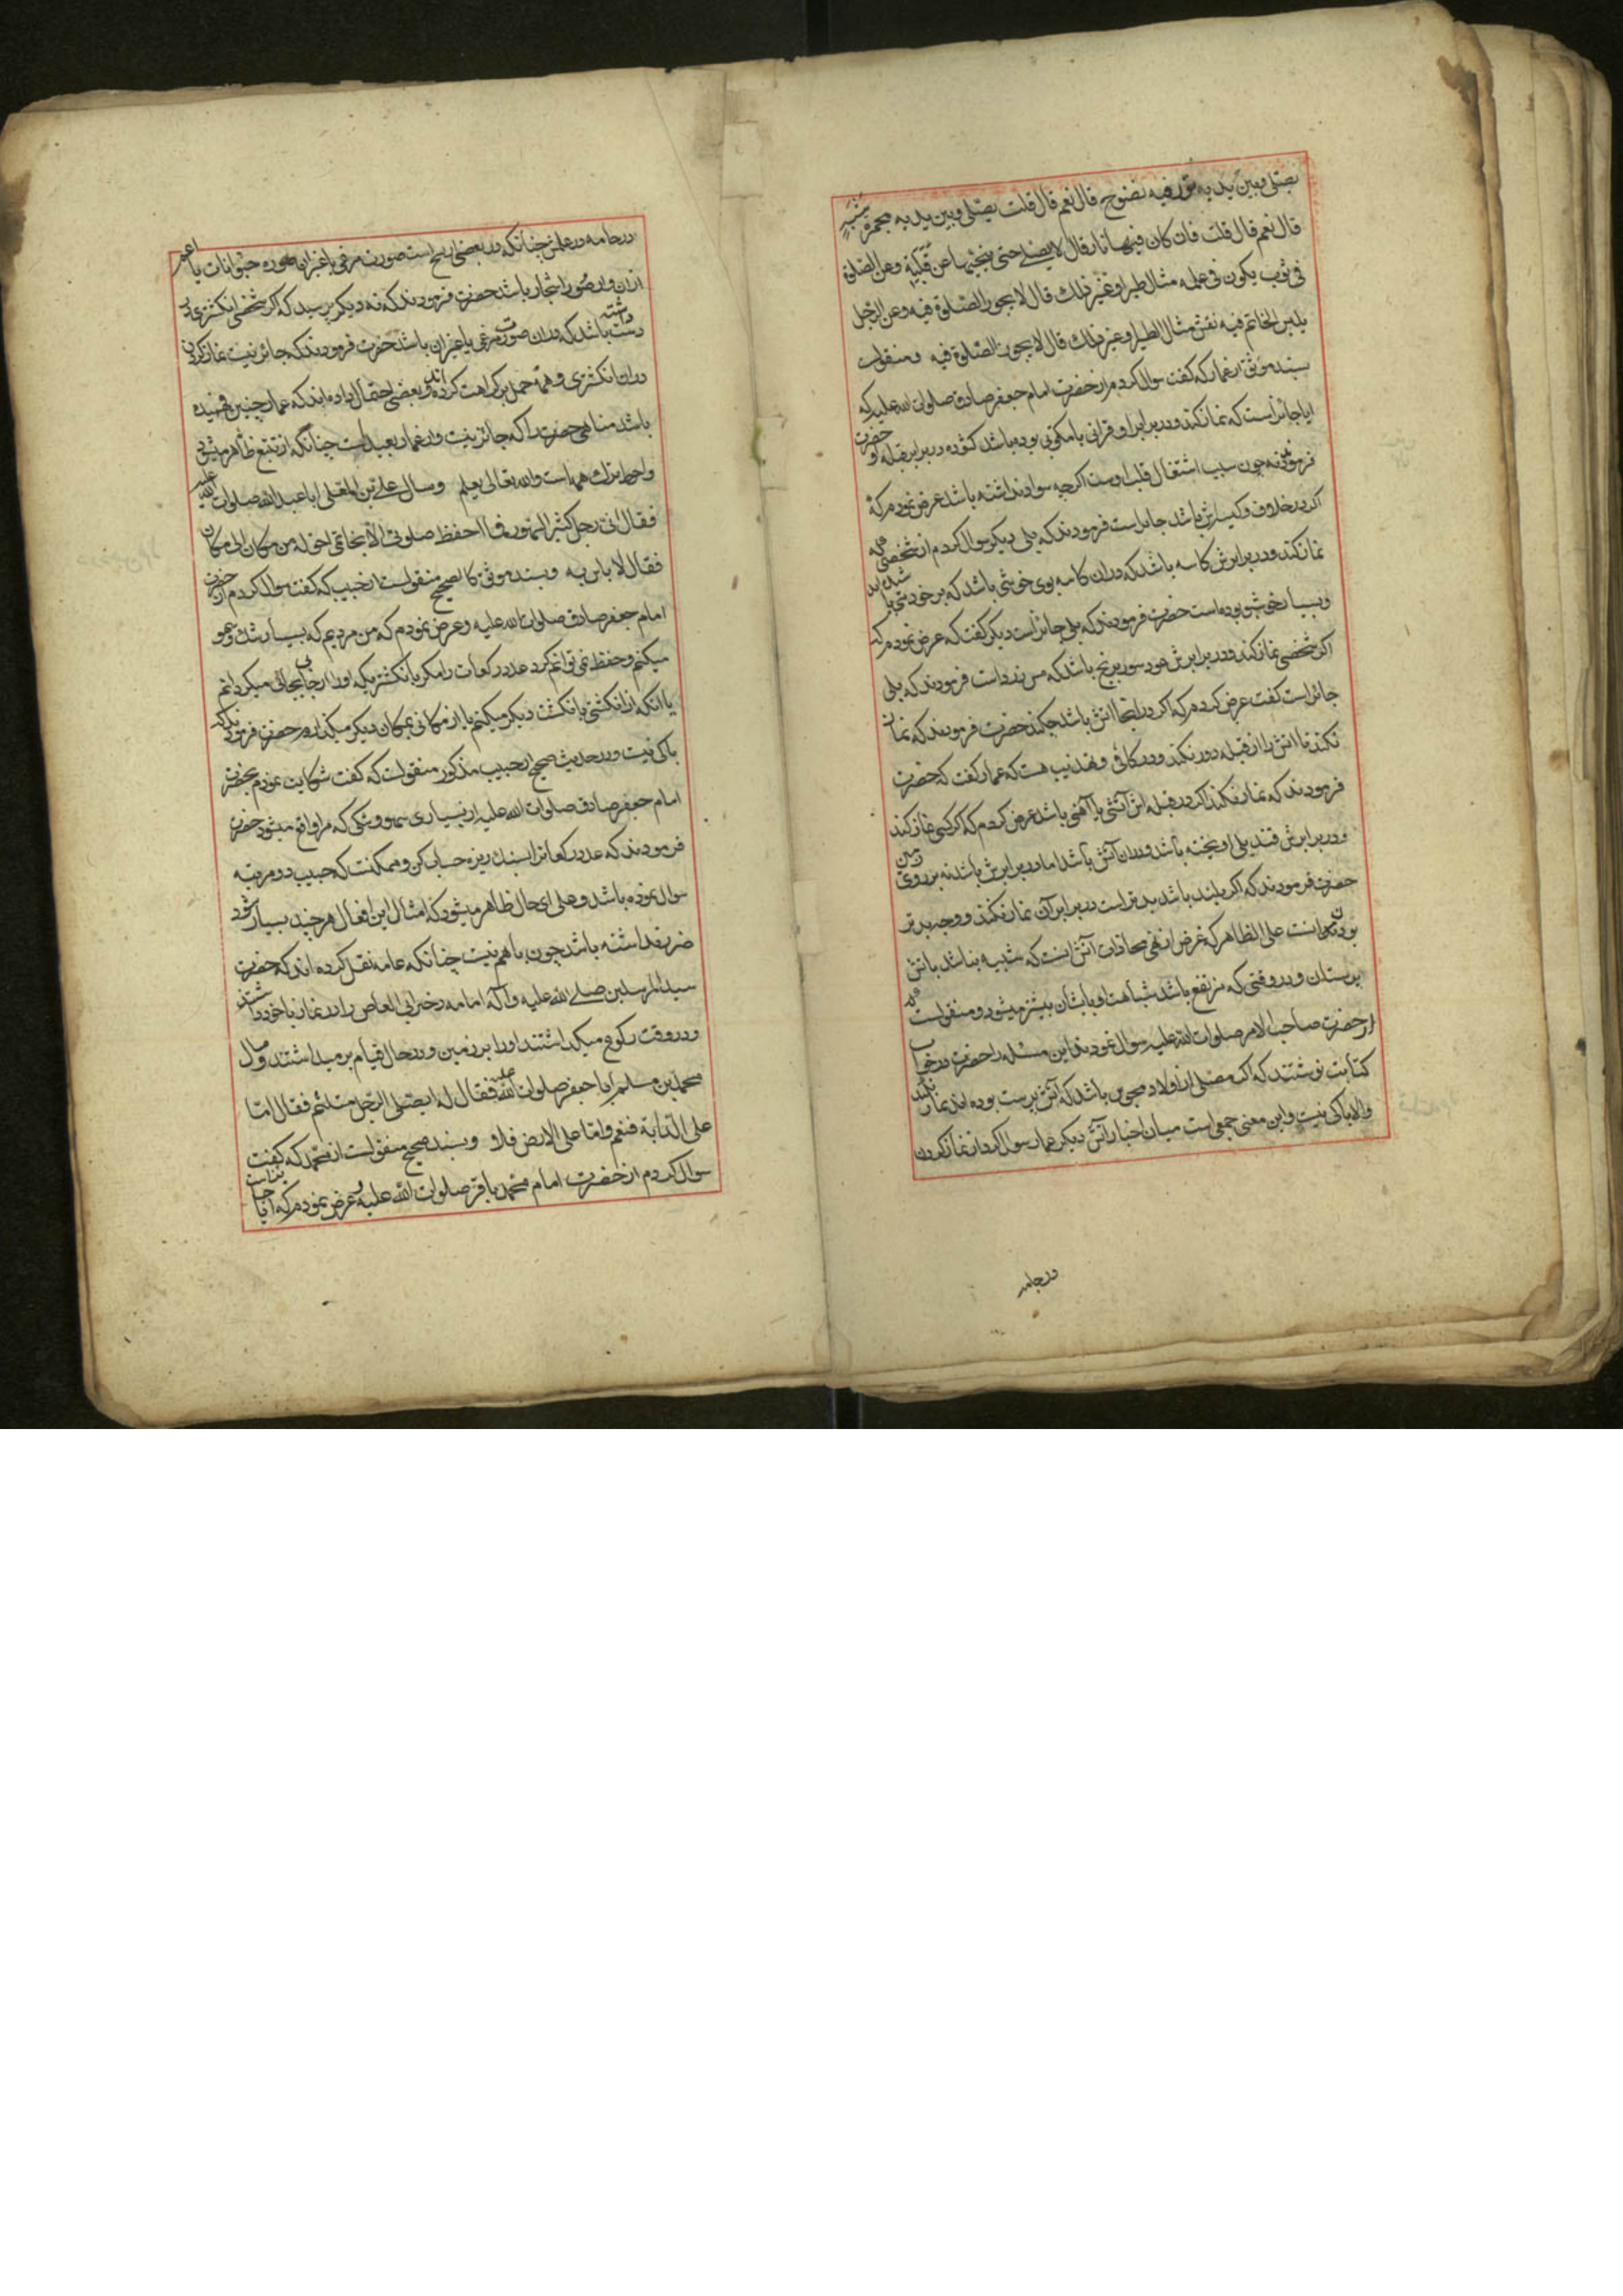 یصلی و بین یدیه تور فیه نضوح قال نعم قال قلت یصلی و بین یدیه مجمرة شبه
قال نعم قال قلت فان کان فیها نار قال لا یصلی حتی ینحیها عن قبلته و عن الصلوة
فی ثوب یکون فی علمه مثال طیر او غیر ذلک قال لا یجوز الصلوة فیه و عن الرجل
یلبس الخاتم فیه نقش مثال الطیر او غیر ذلک قال لا یجوز الصلوة فیه و منقولست
بسند موثق از عمار که گفت سوال کردم از حضرت امام جعفر صادق صلوات الله علیه که
ایا جائز است که نماز کند و در برابر او قرانی یا مکتوبی بوده باشد گشوده در برابر قبله او حضرت
فرمودند نه چون سبب اشتغال قلب اوست اگرچه سواد نداشته باشد عرض نمودم که
اگر در غلاف و کیسه اش باشد جایز است فرمودند که بلی دیگر سوال کردم از شخصی که
نماز کند و در برابرش کاسه باشد که در ان کاسه بوی خوشی باشد که بر خود می
و بسیار خوشبو بوده است حضرت فرمودند که بلی جائز است دیگر گفت که عرض نمودم که
اگر شخصی نماز کند و در برابرش عود سوز برنج باشد که مس زرد است فرمودند که بلی
جائز است گفت عرض کردم که اگر در اینجا اتش باشد چکند حضرت فرمودند که نماز
نکند تا اتش را از قبله دور نکند و در کافی و تهذیب هست که عمار گفت که حضرت
فرمودند که نماز نکند اگر در قبله اش آتشی یا آهنی باشد عرض کردم که اگر کسی نماز کند
و در برابرش قندیلی اویخته باشد و در ان آتش باشد اما در برابرش باشد نه بر روی زمین
حضرت فرمودند که اگر بلند باشد بدتر است در برابر آن نماز نکند و وجه بدتر
بودنش انست علی الظاهر که غرض از نهی محاذات آتش انست که شبیه نباشد باتش
پرستان و در وقتی که مرتفع باشد شباهت او بایشان بیشتر میشود و منقولست که
از حضرت صاحب الامر صلوات الله علیه سوال نمودند این مسئله را حضرت در جواب
کتابت نوشتند که اگر مصلی از اولاد مجوس باشد که آتش پرست بوده اند نماز نکند
والا باکی نیست و این معنی جمعی است میان اخبار آتش دیگر عمار سوال کرد از نماز کردن
در جامه
در جامه و در علمش چنانکه در بعضی نسخ است صورت مرغی یا غیر ان صوره حیوانات یا اعم
ازان و از صور اشجار باشد حضرت فرمودند که نه و دیگر پرسید که اگر شخصی انگشتری در
دست داشته باشد که در ان صورت مرغی یا غیر ان باشد حضرت فرمودند که جائز نیست نماز کردن
در ان انگشتری و همه حمل بر کراهت کرده اند و بعضی احتمال داده اند که عمار چنین فهمیده
باشد مناهی حضرت را که جائز نیست و از عمار بعید است چنانکه از تتبع ظاهر میشود
و احوط ترک همه است والله تعالی یعلم و سال علی بن المعلی ابا عبد الله صلوات الله علیه
فقال انی رجل کثیر السهو فما احفظ صلوتی الا بخاتمی احوله من مکان الی مکان
فقال لا باس به و بسند موثق کالصحیح منقولست از حبیب که گفت سوال کردم از حضرت
امام جعفر صادق صلوات الله علیه و عرض نمودم که من مردیم که بسیار شک و سهو
میکنم و حفظ نمی توانم کرد عدد رکعات را مگر بانگشتریکه او را از جایی بجائی میگردانم
یا انکه از انگشتی بانگشت دیگر میکنم یا از مکانی بمکان دیگر میگذارم حضرت فرمودند که
باکی نیست و در حدیث صحیح از حبیب مذکور منقولست که گفت شکایت نمودم بحضرت
امام جعفر صادق صلوات الله علیه از بسیاری سهو و شکی که مرا واقع میشود حضرت
فرمودند که عدد رکعات را بسنک ریزه حساب کن و ممکنست که حبیب دو مرتبه
سوال نموده باشد و علی ای حال ظاهر میشود که امثال این افعال هر چند بسیار شود
ضرر نداشته باشد چون با هم نیست چنانکه عامه نقل کرده اند که حضرت
سید المرسلین صلی الله علیه و آله امامه دختر ابی العاص را در نماز با خود داشتند
و در وقت رکوع میگذاشتند او را بر زمین و در حال قیام بر میداشتند و سال
محمد بن مسلم ابا جعفر صلوات الله علیه فقال له ایصلی الرجل متلثم فقال اما
علی الدابة فنعم و اما علی الارض فلا و بسند صحیح منقولست از محمد که گفت
سوال کردم از حضرت امام محمد باقر صلوات الله علیه و عرض نمودم که آیا جایز است